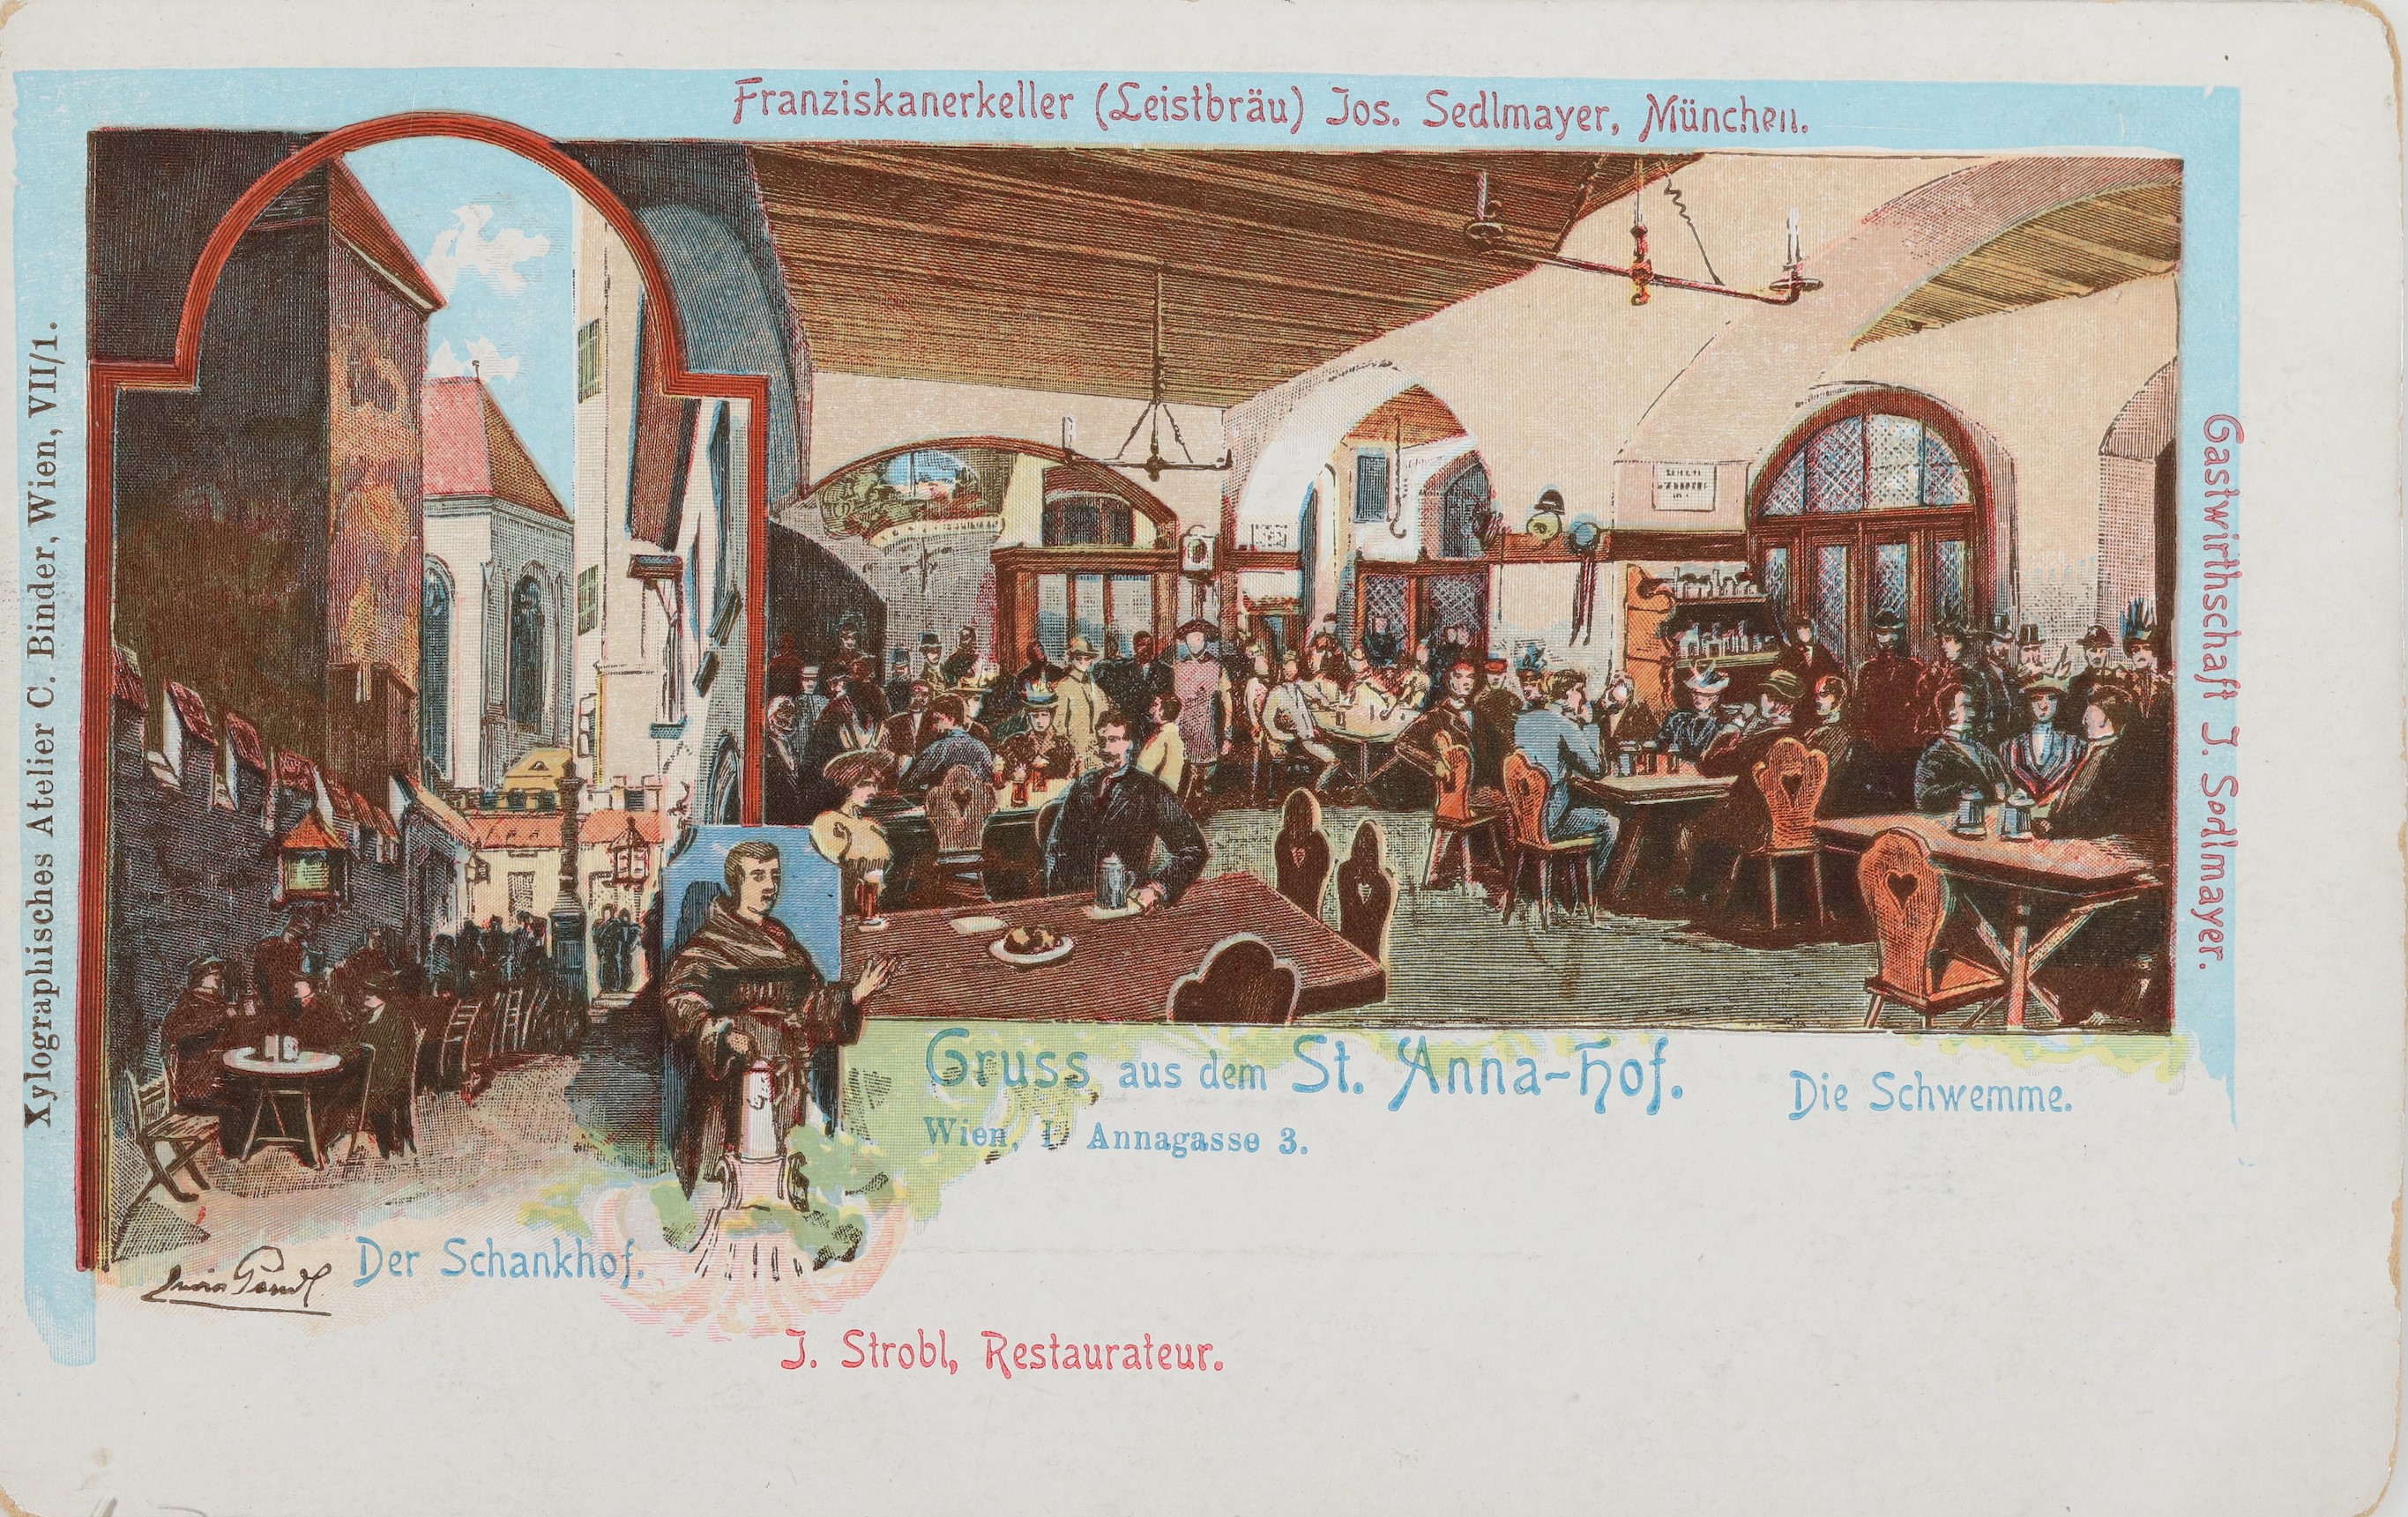 Franziskanerkeller (Leistbräu) Jos. Sedlmayer, München.
Xylographisches Atelier C. Binder, Wien, VII/1.
Gastwirthschaft J. Sedlmayer.
Gruss aus dem St. Anna-Hof.
Wien, I. Annagasse 3.
Die Schwemme.
Der Schankhof.
J. Strobl, Restaurateur.